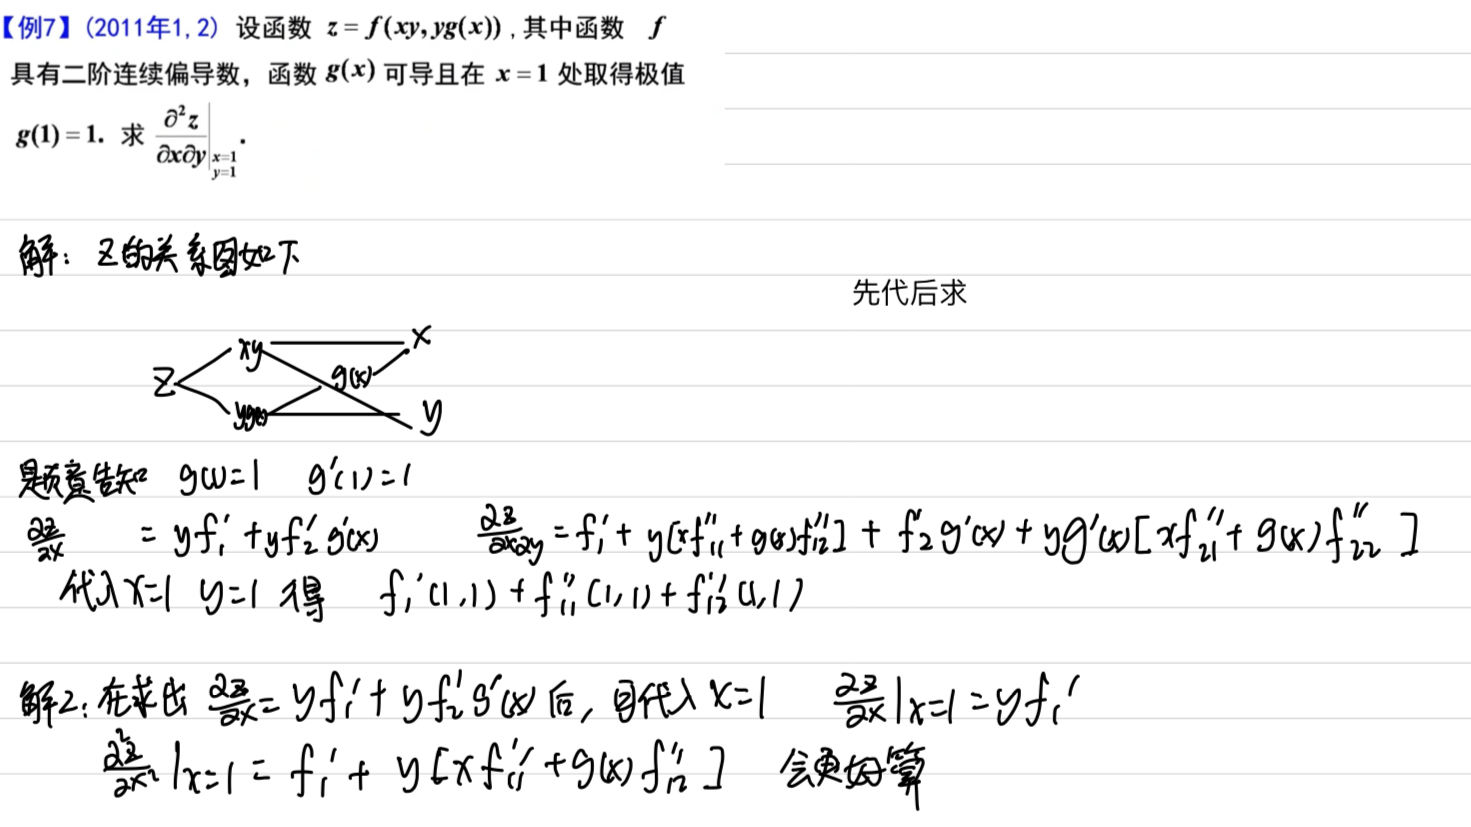 【例7】(2011年1,2) 设函数 z = f(xy, yg(x)) , 其中函数 f
具有二阶连续偏导数，函数 g(x) 可导且在 x = 1 处取得极值
g(1) = 1. 求 ∂²z/∂x∂y |x=1 y=1 .
解: Z的关系图如下
先代后求
Z xy yg(x) g(x) x y
题意告知 g(1)=1 g'(1)=1
∂z/∂x = yf₁' + yf₂'g'(x) ∂z/∂x∂y = f₁' + y[xf₁₁'' + g(x)f₁₂''] + f₂'g'(x) + yg'(x)[xf₂₁'' + g(x)f₂₂'']
代入x=1 y=1 得 f₁'(1,1) + f₁₁''(1,1) + f₁₂''(1,1)
解2: 在求出 ∂z/∂x = yf₁' + yf₂'g'(x) 后, 代入 x=1 ∂z/∂x|x=1 = yf₁'
∂²z/∂x² |x=1 = f₁' + y[xf₁₁'' + g(x)f₁₂''] 会更好算